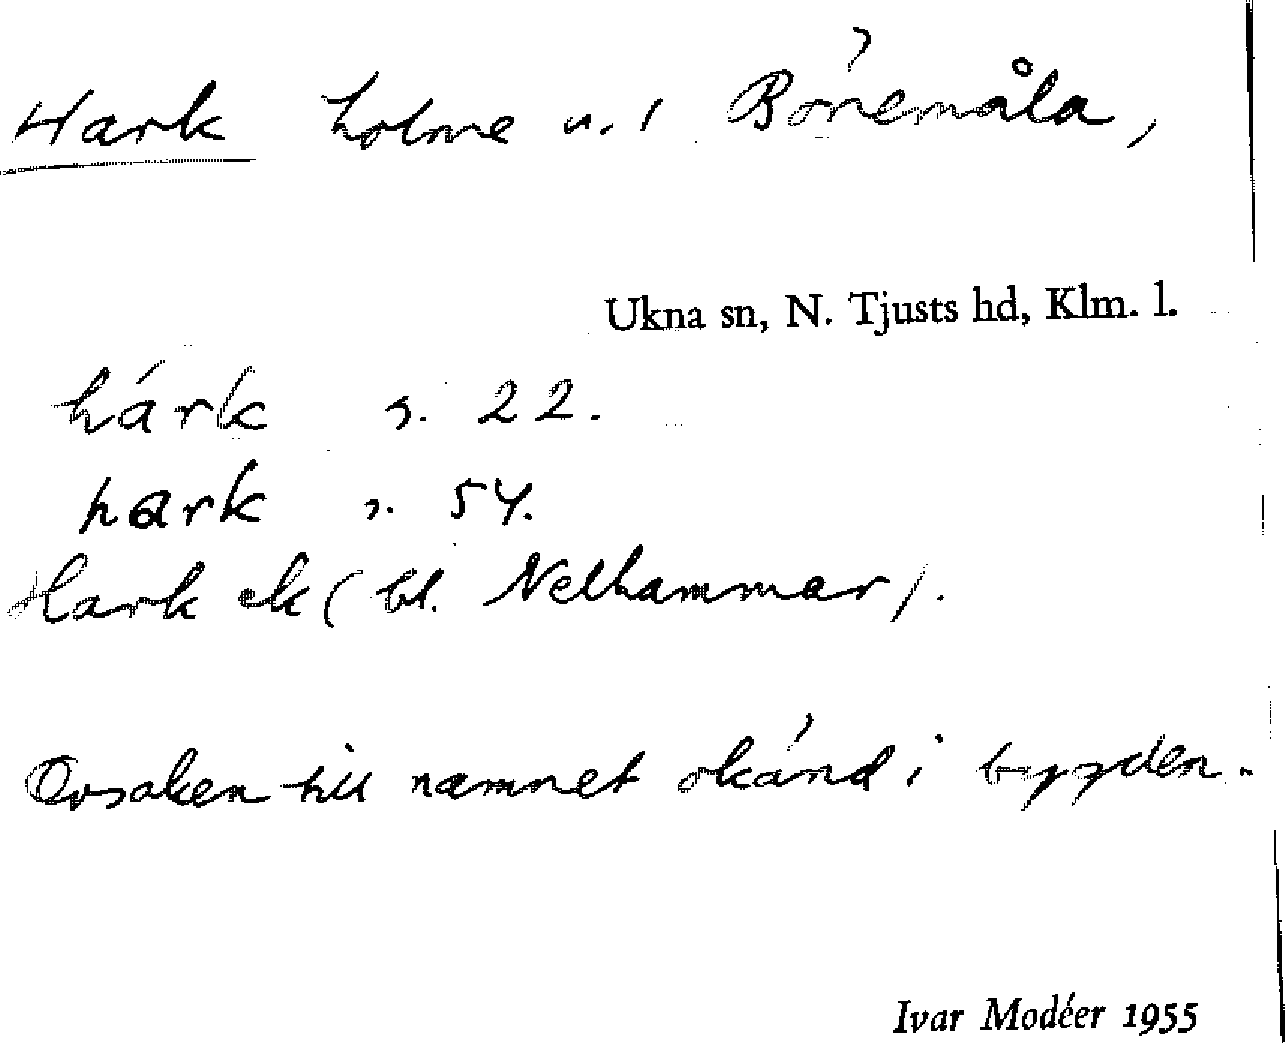 Hark holme u. i Bönemåla,
Ukna sn, N. Tjusts hd, Klm. l.
hárk s. 22.
hark s. 54.
Hark ek (bl. Nelhammar).
Orsaken till namnet okänd i bygden.
Ivar Modéer 1955